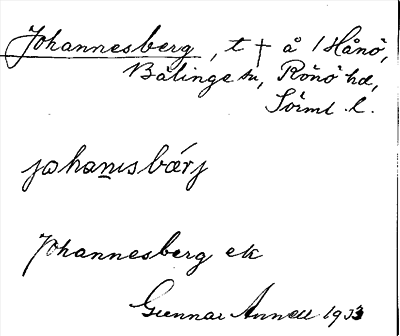 Johannesberg, t † å 1 Hånö,
Bälinge sn, Rönö hd,
Sörml. l.
johanısbærj
Johannesberg ek
Gunnar Annell 1933